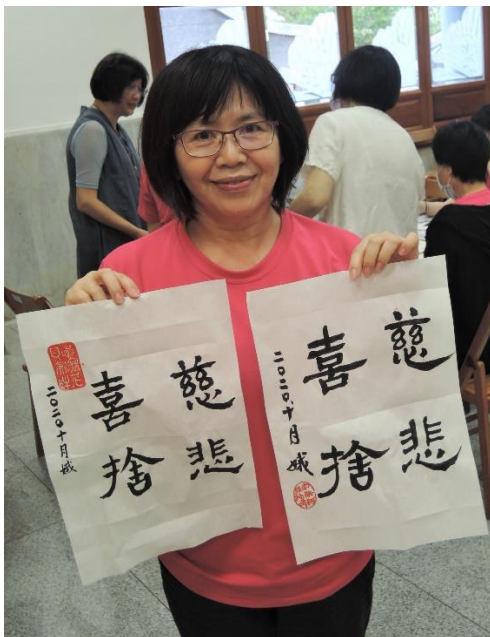 慈悲
喜捨
二〇二〇十月娥
慈悲
喜捨
二〇二〇.十月娥